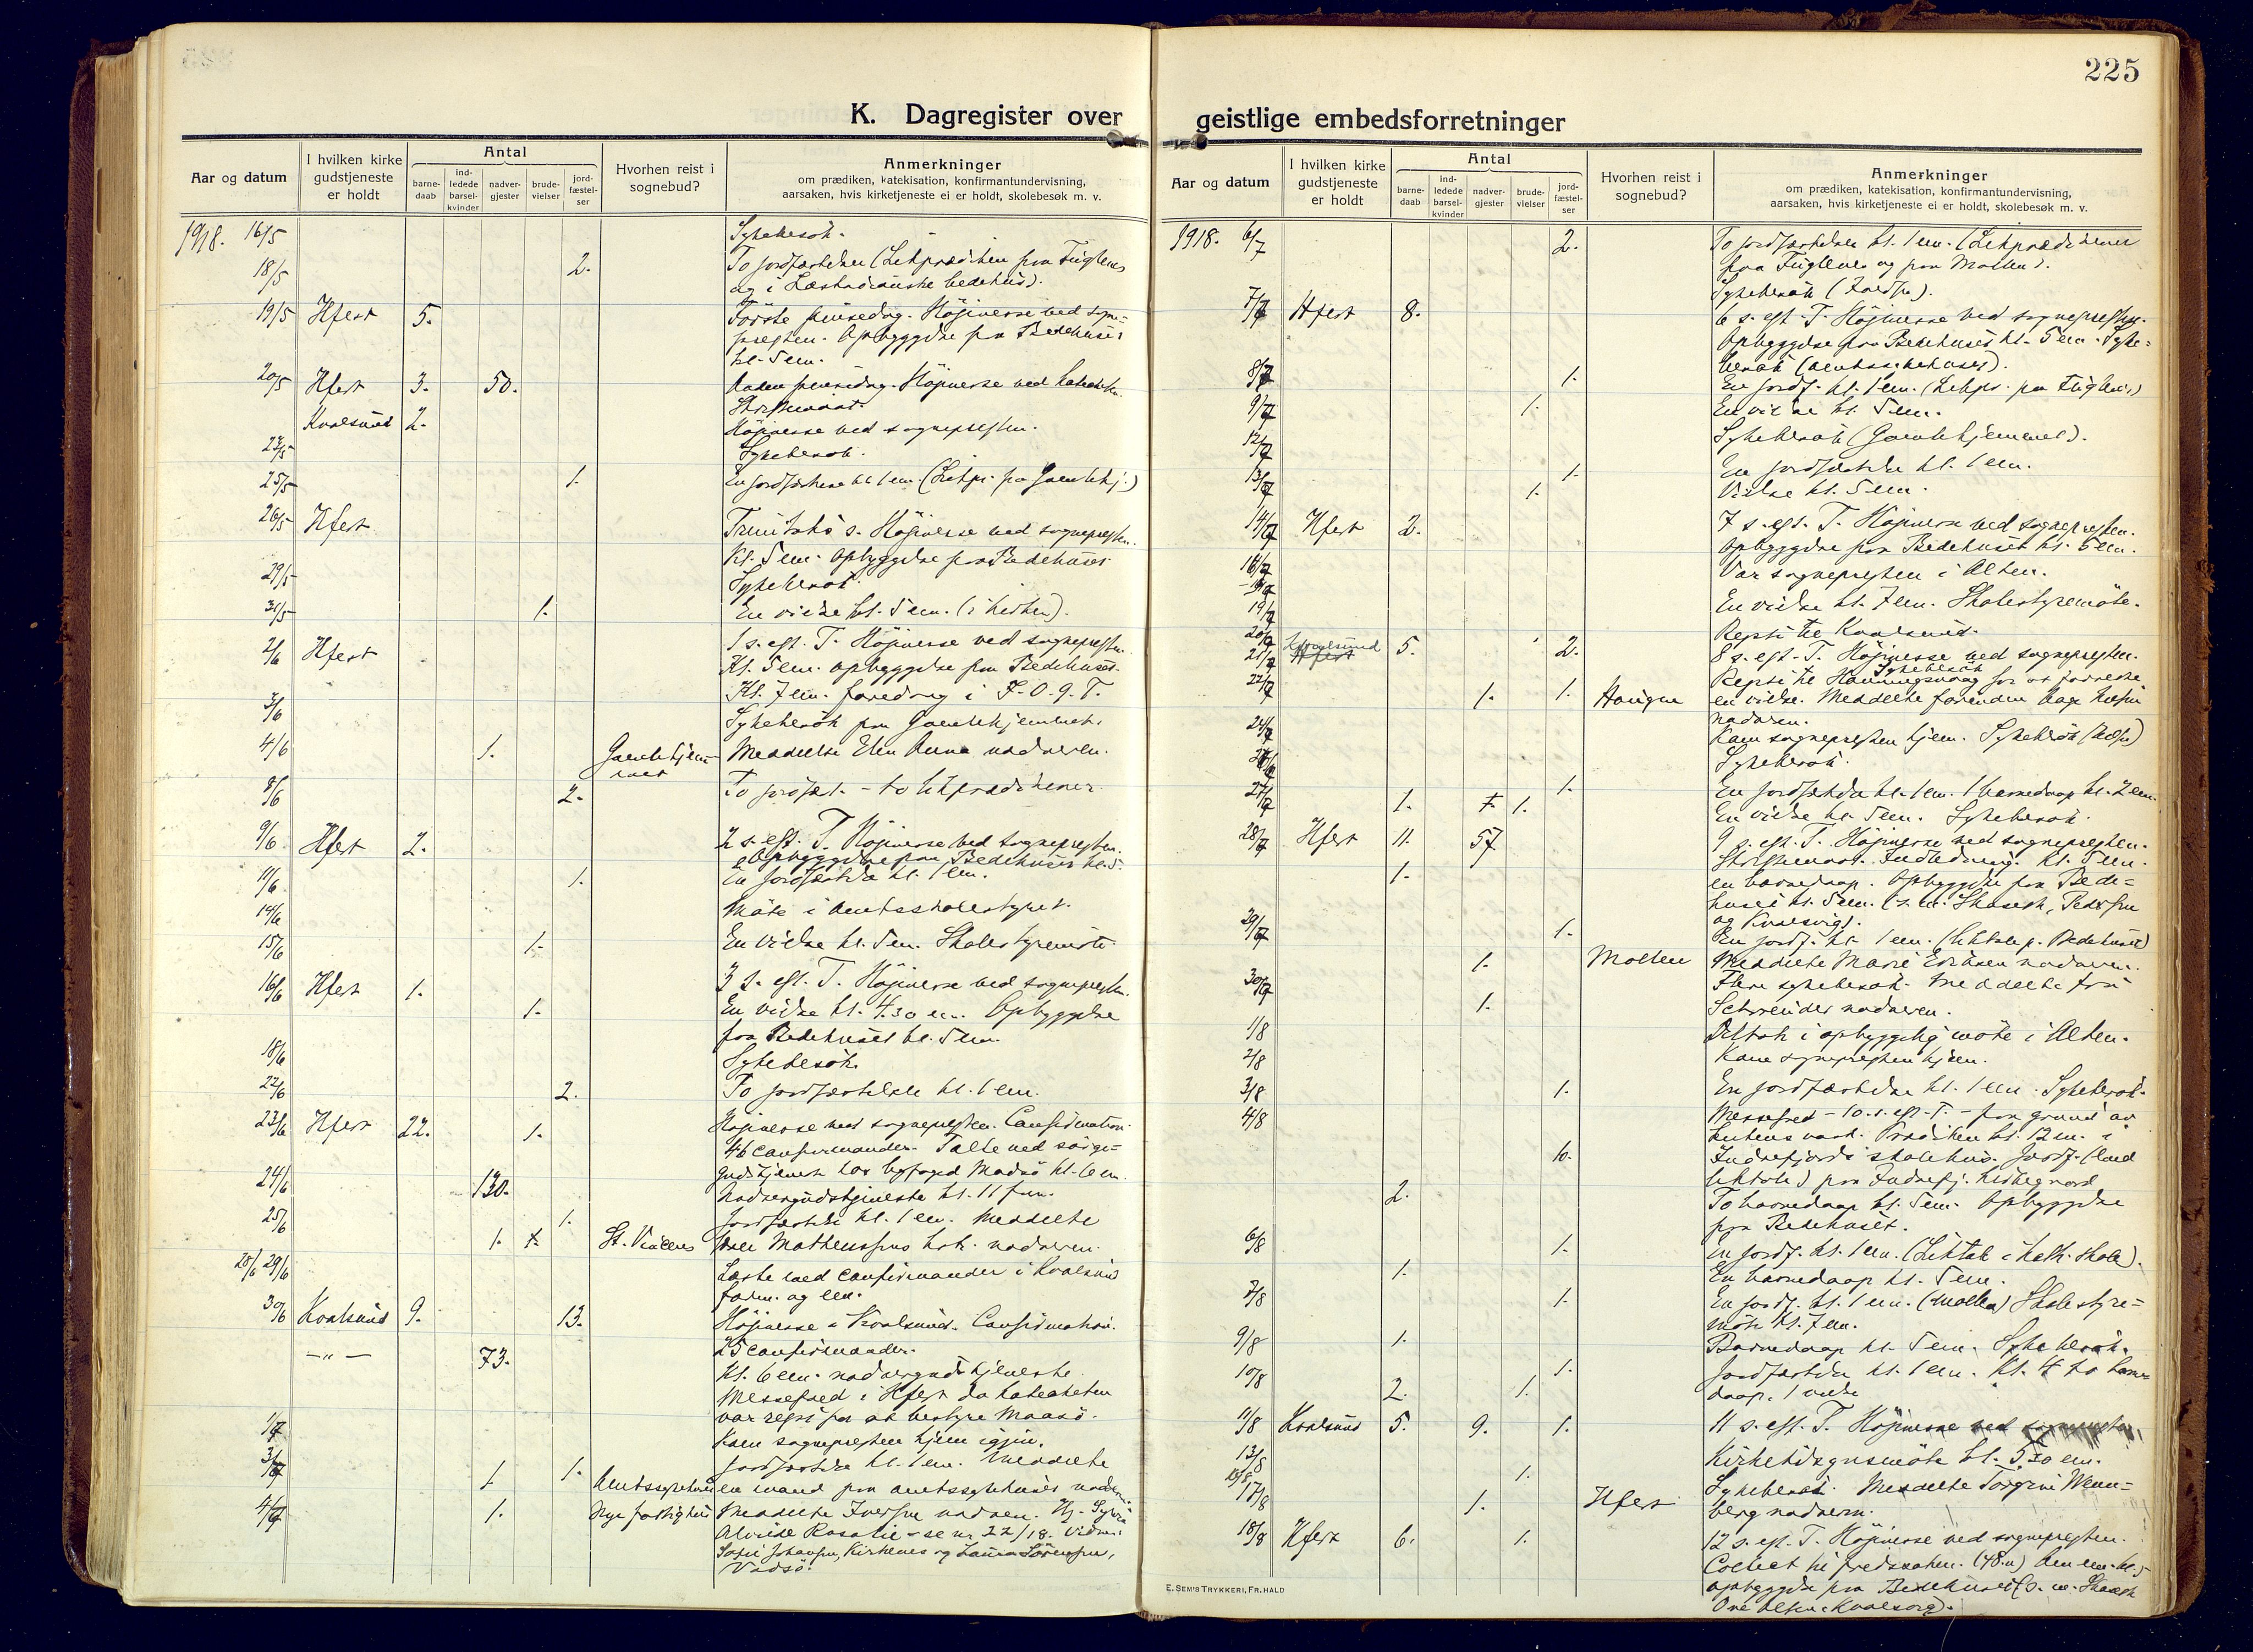 225
K. Dagregister over
Aar og datum
I hvilken kirke gudstjeneste er holdt
Antal
barne-daab
ind-ledede barsel-kvinder
nadver-gjester
brude-vielser
jord-fæstel-ser
Hvorhen reist i sognebud?
Anmerkninger
om prædiken, katekisation, konfirmantundervisning,
aarsaken, hvis kirketjeneste ei er holdt, skolebesøk m. v.
1918. 16/5 Sykebesök.
18/5 2. To jordfæstelser (Likprædiken paa Fuglenes
og i Læstadianske bedehus).
19/5 Hfest 5. Første pinsedag. Höjmesse ved sogne-
presten. Opbyggelse paa Bedehuset
kl. 5 em.
20/5 Hfest 3. 50. Anden pinsedag. Höjmesse ved kateketen.
Skriftemaal.
Kvalsund 2. Höjmesse ved sognepresten.
Sykebesök.
25/5 1. En jordfæstelse kl 1 em. (Likpr. paa Gamlehj.)
26/5 Hfest Trinitatis s. Höjmesse ved sognepresten.
Kl. 5 em. Opbyggelse paa Bedehuset
29/5 Sykebesök.
31/5 1. En vielse kl. 5 em. (i kirken).
2/6 Hfest 1 s. eft. T. Höjmesse ved sognepresten.
Kl. 5 em. opbyggelse paa Bedehuset.
Kl. 7 em. foredrag i I.O.G.T.
3/6 Sykebesök paa Gamlehjemmet.
4/6 1. Gamlehjem-
met Meddelte Elen Anna nadveren.
8/6 2. To jordfæst. - to likprædikener.
9/6 Hfest 2. 2 s. eft. T. Höjmesse ved sognepresten.
Opbyggelse paa Bedehuset kl. 5.
11/6 1. En jordfæstelse kl. 1 em.
14/6 Möte i Amtsskolestyret.
15/6 1. En vielse kl. 5 em. Skolestyremöte.
16/6 Hfest 1. 3 s. eft. T. Höjmesse ved sognepresten.
1. En vielse kl. 4.30 em. Opbyggelse
paa Bedehuset kl. 5 em.
18/6 Sykebesök.
22/6 2. To jordfæstelser kl. 1 em.
23/6 Hfest 22. 1. Höjmesse ved sognepresten. Confirmation.
46 confirmander. Talte ved sörge-
gudstjeneste kl. 6 em.
24/6 130. Nadvergudstjeneste kl. 11 fm.
25/6 1. Jordfæstelse kl. 1 em. Meddelte
1. St. Vincens nadveren.
28/6 29/6 Læste med confirmander i Kvalsund
form. og em.
30/6 Kvalsund 9. 13. Höjmesse i Kvalsund. Confirmation.
25 confirmander.
—"— 73. Kl. 6 em. nadvergudstjeneste.
Messefald i Hfest da kateketen
var reist for at bestyre Maasö.
1/7 Kom sognepresten hjem igjen.
3/7 1. 1. Jordfæstelse kl. 1 em. Meddelte
Amtssykehuset en mand paa amtssykehuset nadveren.
4/7 1. Nye fattighus Meddelte Iversen nadveren. Hj.
Alvilde Rosalie - se nr 22/18. Vidner:
Sofie Johansen, Kirkenes og Laura Sörensen,
Vadsö.
geistlige embedsforretninger
Aar og datum
I hvilken kirke gudstjeneste er holdt
Antal
barne-daab
ind-ledede barsel-kvinder
nadver-gjester
brude-vielser
jord-fæstel-ser
Hvorhen reist i sognebud?
Anmerkninger
om prædiken, katekisation, konfirmantundervisning,
aarsaken, hvis kirketjeneste ei er holdt, skolebesøk m. v.
1918. 6/7 2. To jordfæstelser kl. 1 em. (Likprædikener
paa Fuglenes og paa Mollen).
Sykebesök
7/7 Hfest 8. 6 s. eft. T. Höjmesse ved sognepresten.
Opbyggelse paa Bedehuset kl. 5 em. Syke-
besök (amtssykehuset).
8/7 1. En jordf. kl. 1 em. (Likpr. paa Fuglenes)
9/7 1. En vielse kl. 5 em.
12/7 Sykebesök (Gamlehjemmet).
13/7 1. En jordfæstelse kl. 1 em.
1. Vielse kl. 5 em.
14/7 Hfest 2. 7 s. eft. T. Höjmesse ved sognepresten.
Opbyggelse paa Bedehuset kl. 5 em.
16/7 Var sognepresten i Alten.
19/7 En vielse kl. 7 em. Skolestyremöte.
20/7 Reiste til Kvalsund.
21/7 Kvalsund 5. 2. 8 s. eft. T. Höjmesse ved sognepresten.
Sykebesök
22/7 1. 1. Havigen Reiste til Honningsvaag for at forrette
en vielse. Meddelte
nadveren.
24/7 Kom sognepresten hjem. Sykebesök
Sykebesök.
27/7 1. En jordfæstelse kl. 1 em. 1 barnedaap kl. 2 em.
1. 1. En vielse kl. 5 em. Sykebesök.
28/7 Hfest 11. 57 9 s. eft. T. Höjmesse ved sognepresten.
Skriftemaal. Indledning. Kl. 5 em.
1. en barnedaap. Opbyggelse paa Bede-
huset kl. 5 em.
og Kvalsvig).
29/7 1. En jordf. kl. 1 em. (liktale p. Bedehuset)
1. Mollen Meddelte Marie Eriksen nadveren.
30/7 Flere sykebesök. Meddelte fru
1. nadveren.
1/8 Deltok i opbyggelig möte i Alten.
2/8 Kom sognepresten hjem.
3/8 1. En jordfæstelse kl. 1 em. Sykebesök.
4/8 Messefald - 10. s. eft. T. - paa grund av
Prædiken kl. 12 m. i
10. Indrefjords skolehus. Jordf. (med
liktale) paa Indrefj. kirkegaard
2. To barnedaap kl. 5 em. Opbyggelse
paa Bedehuset.
6/8 1. En jordf. kl. 1 em. (Liktale i kath. skole).
1. En barnedaap kl. 5 em.
7/8 1. En jordf. kl. 1 em. (Mollen) Skolestyre-
möte kl. 7 em.
9/8 1. Barnedaap kl. 5 em. Sykebesök.
10/8 1. Jordfæstelse kl. 1 em. Kl. 4 to barne-
2. 1. daap, 1 vielse
11/8 Kvalsund 5. 9. 1. 11 s. eft. T. Höjmesse ved
13/8 Kirketidsmöte kl. 5.30 em.
15/8 1. Sykebesök. Meddelte
17/8 1. Hfest nadveren.
18/8 Hfest 6. 1. 12 s. eft. T. Höjmesse ved sognepresten.
(48.u) kl. 5
opbyggelse paa Bedehuset
E. SEM'S TRYKKERI, FR.HALD